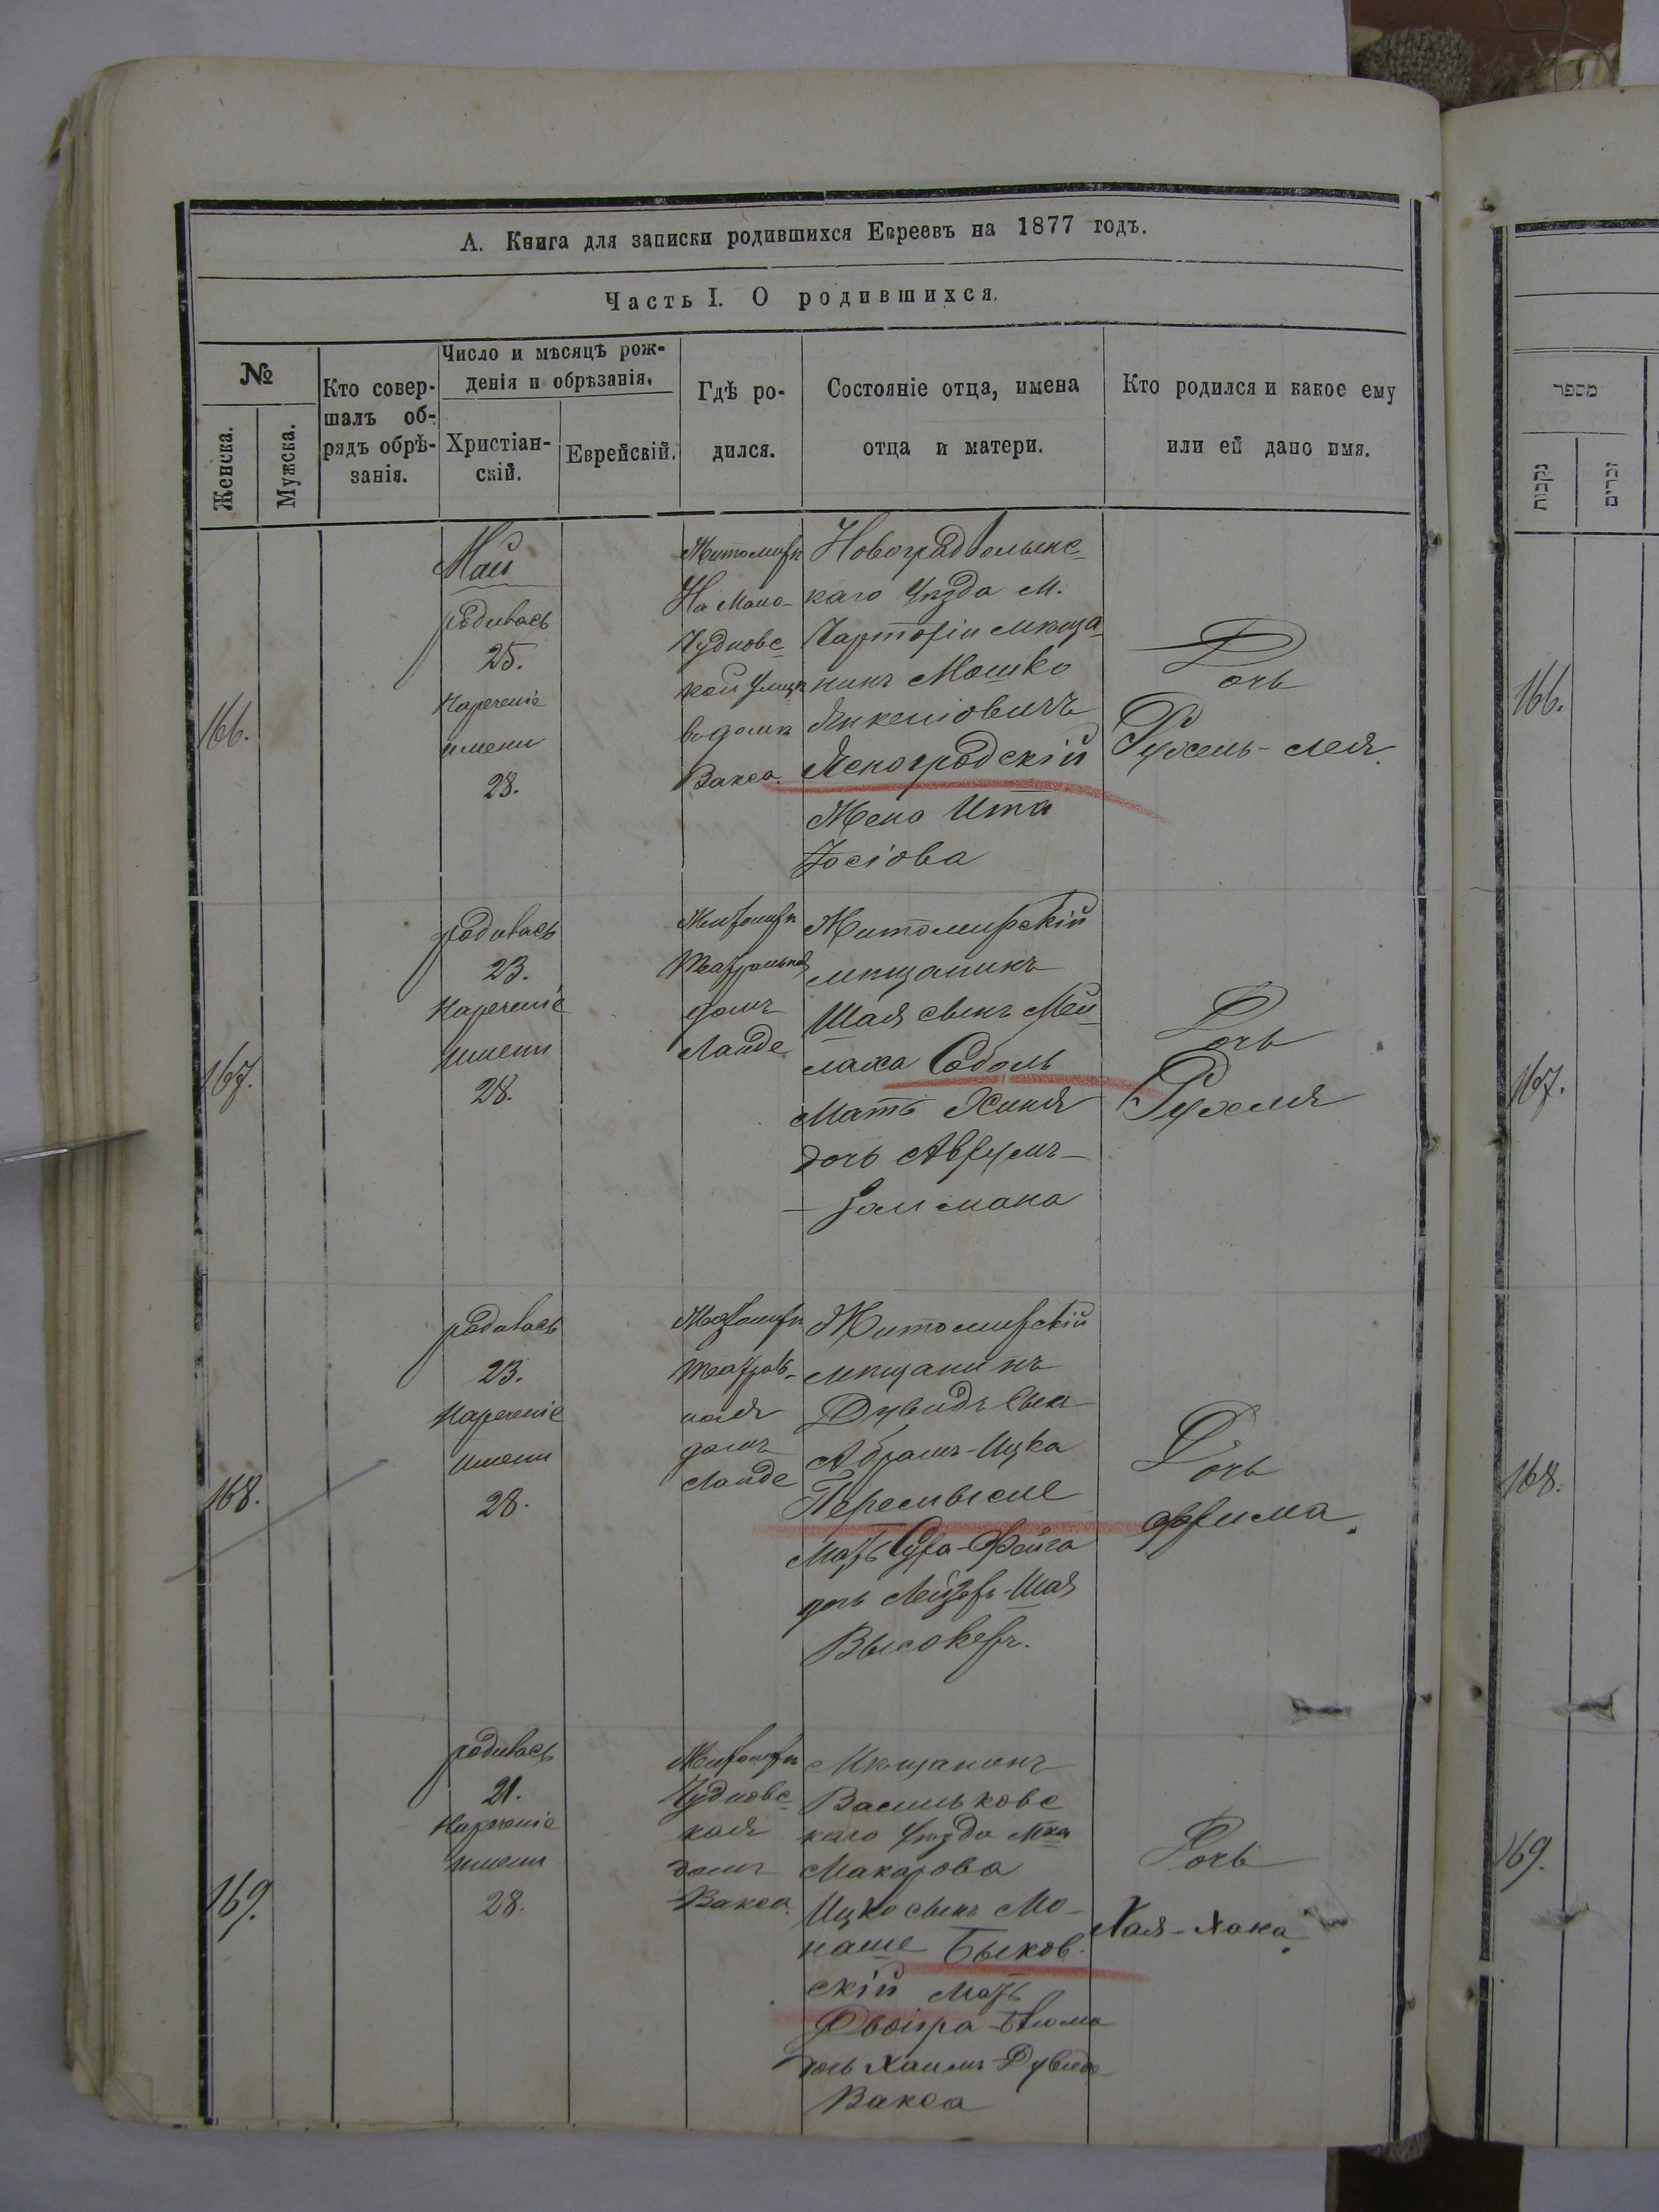 А. Книга для записки родившихся Евреевъ на 1877 годъ.
Часть I. О родившихся.
№
Женска.
Мужска.
Кто совер-
шалъ об-
рядъ обрѣ-
занія.
Число и мѣсяцъ рож-
денія и обрѣзанія.
Христіан-
скій.
Еврейскій.
Гдѣ ро-
дился.
Состояніе отца, имена
отца и матери.
Кто родился и какое ему
или ей дано имя.
166.
Май
родилась
25.
Нареченіе
имени
28.
Житомирѣ
На Мало-
Чудновс-
кой улицѣ
въ домѣ
Вакса.
Новоградволынс-
каго уѣзда М.
Мѣща-
нинъ Мошко
Янкеліовичъ
Ясногродскій
Жена Ита
Іосіова
Дочь
Рухель-Лея.
167.
родилась
23.
Нареченіе
имени
28.
Житомирѣ
Театральная
домъ
Ланде
Житомирскій
мѣщанинъ
Шая сынъ Мей-
лаха Соболь
Мать Хиня
дочь Аврумъ-
-Залмана
Дочь
Рухля
168.
родилась
23.
Нареченіе
имени
28.
Житомирѣ
Театраль-
ная
домъ
Ланде
Житомирскій
мѣщанинъ
Дувидъ сынъ
Абрамъ-Ицка
Перемысле
Мать Сура-Фейга
дочь Лейзеръ-Шая
Высокеръ.
Дочь
Фрима.
169.
родилась
21.
Нареченіе
имени
28.
Житомирѣ
Чудновс-
кая
домъ
Вакса.
Мѣщанинъ
Васильковс
каго уѣзда Мка
Макарова
Ицко сынъ Мо-
наше Быков-
скій Мать
Двойра-Блюма
дочь Хаимъ-Дувида
Вакса
Дочь
Хая-Хана.
מספר
נקבות
זכרים
166.
167.
168.
169.